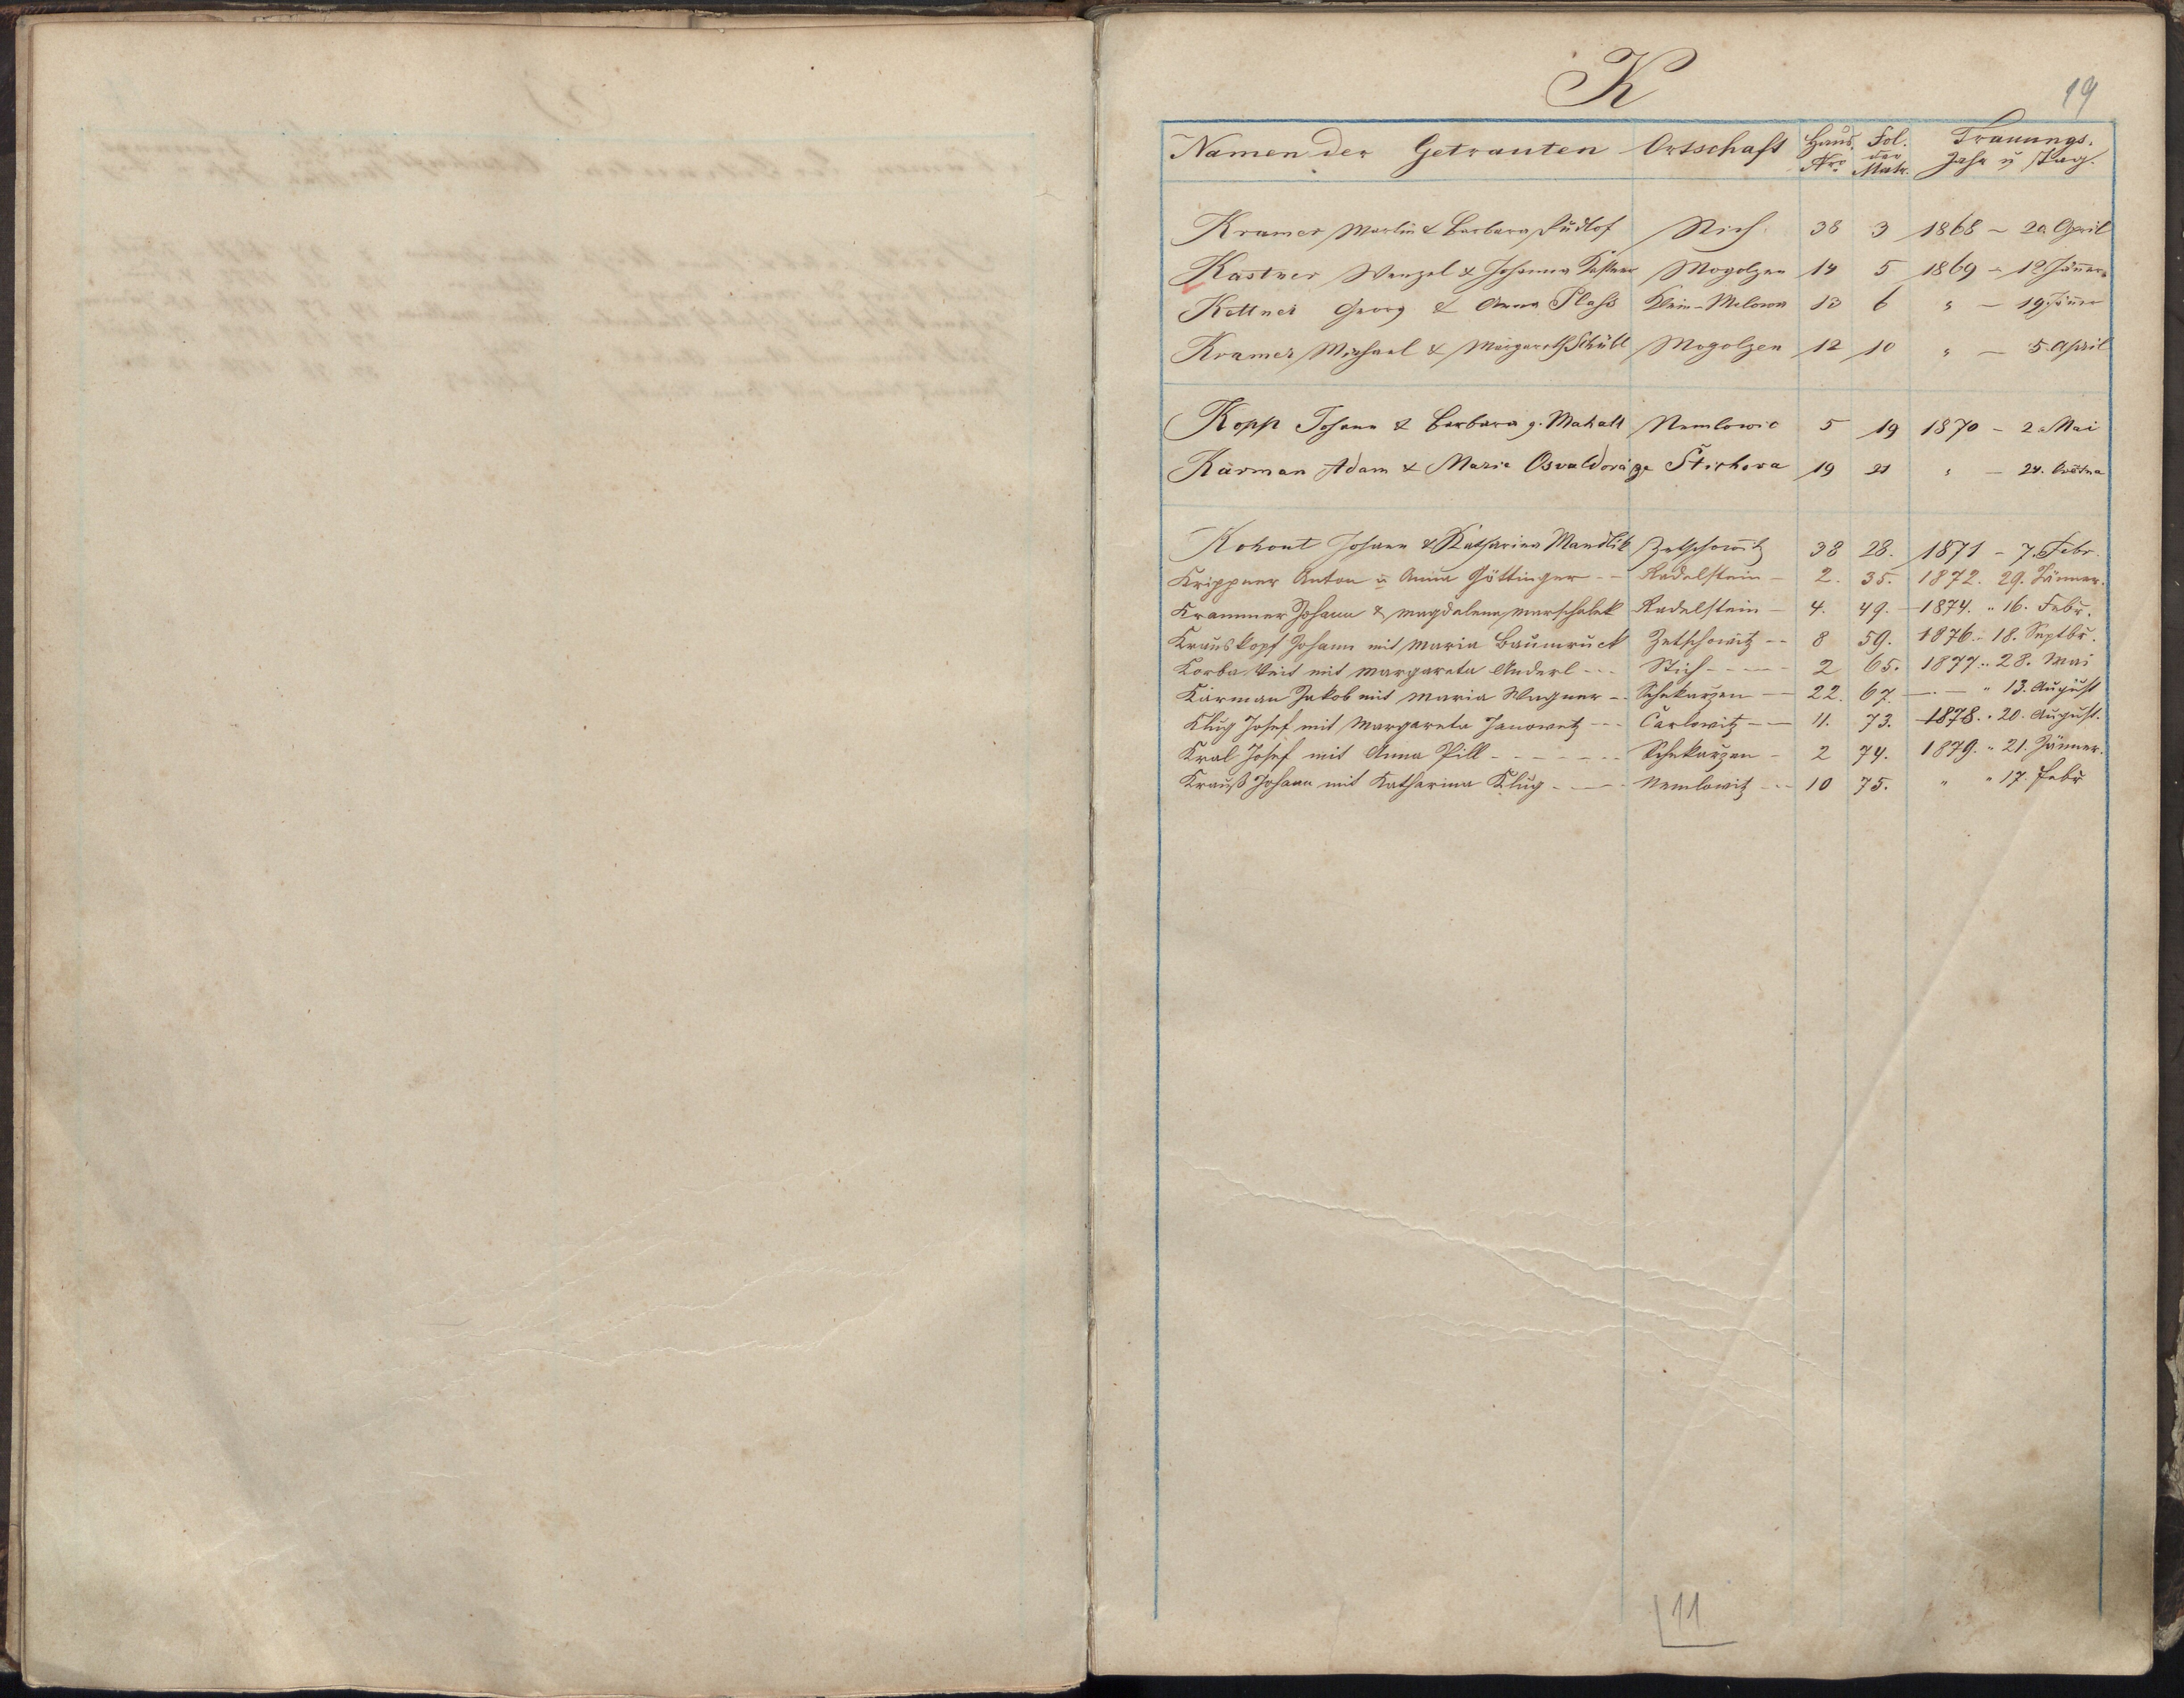 K
19
Namen der Getrauten Ortschaft Haus Nro Fol. der Matr. Trauungs. Jahr u Tag.
Kramer Martin & Barbara Rudlof Stich 38 3 1868 – 20 April
Kastner Wenzel & Johanna Mogolzen 14 5 1869 – 12 Jänner
Kettner Georg & Anna Plass Klein-Melowa 13 6 " – 19. Jänner
Kramer Michael & Margareth Schübl Mogolzen 12 10 " – 5. April
Kopp Johann & Barbara g. Mahalt Nemlowic 5 19 1870 – 2. Mai
Karman Adam & Marie Osvaldová ze Štichova 19 21 " – 24.
Kohout Johann & Katharina Mandlik Zetschowitz 38 28. 1871 – 7. Febr.
Krippner Anton u Anna Göttinger – Radelstein – 2. 35. 1872. 29. Jänner.
Krammer Johann & Magdalena Marschalek Radelstein – 4. 49. – 1874. " 16. Febr.
Krauskopf Johann mit Maria Baumruck Zetschowitz – 8 59. 1876. – 18. Septbr.
Korba Veit mit Margareta Anderl – Stich – 2 65. 1877. " 28. Mai
Kárman Jakob mit Maria Wagner – Schekarzen – 22. 67. — " 13. August
Klug Josef mit Margareta Janowetz – Čarlowitz – 11. 73. – 1878. " 20. August.
Kral Josef mit Anna Pill – Schekarzen – 2 74. 1879. " 21. Jänner.
Krauß Johann mit Katharina Klug – Nemlowitz – 10 75. " " 17. Febr
11